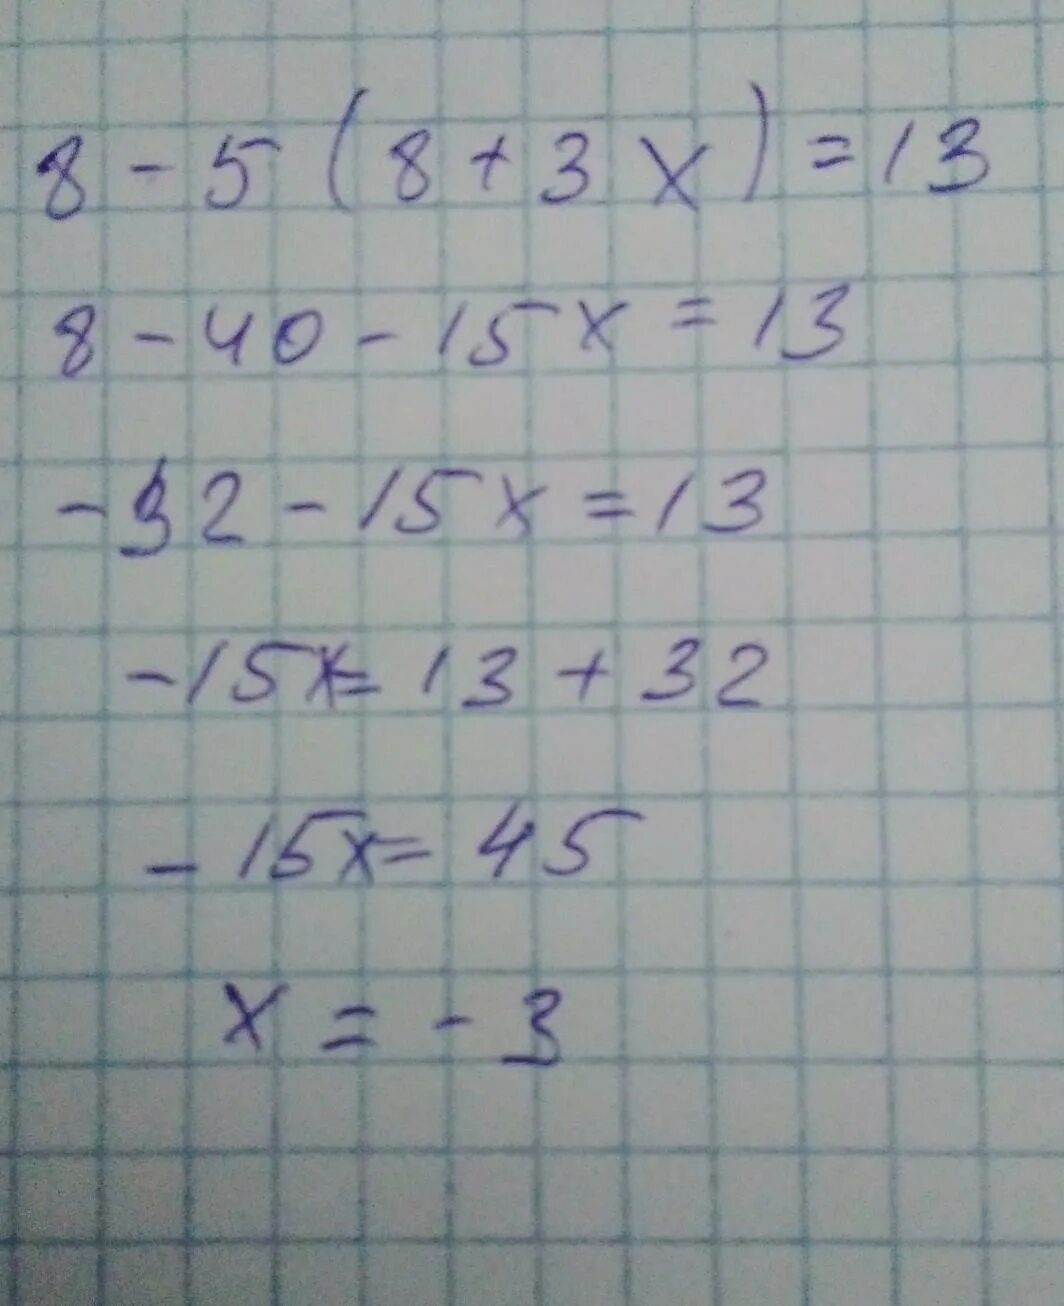 8 - 5 ( 8 + 3 x ) = 13
8 - 40 - 15 x = 13
- 32 - 15 x = 13
- 15 x = 13 + 32
- 15 x = 45
x = - 3